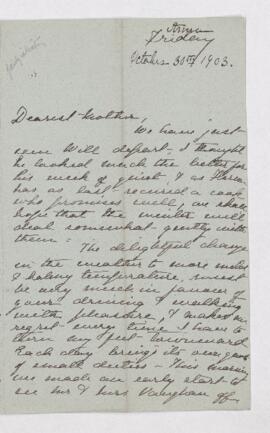 Friday
October 30th 1903.
Dearest Mother,
We have just
seen Will depart - I thought
he looked much the better for
his week of quiet & as
has at last secured a cook
who promises well, we
hope that the winter will
deal somewhat gently with
them :-
The delightful change
in the weather to more
& balmy temperature, must
be very much in favour of
your driving & walking
with pleasure, & makes me
regret every time I have to
turn my feet townward
Each day brings its own
of small duties - This morning
we made an early start to
see Mr & Mrs Vaughan off